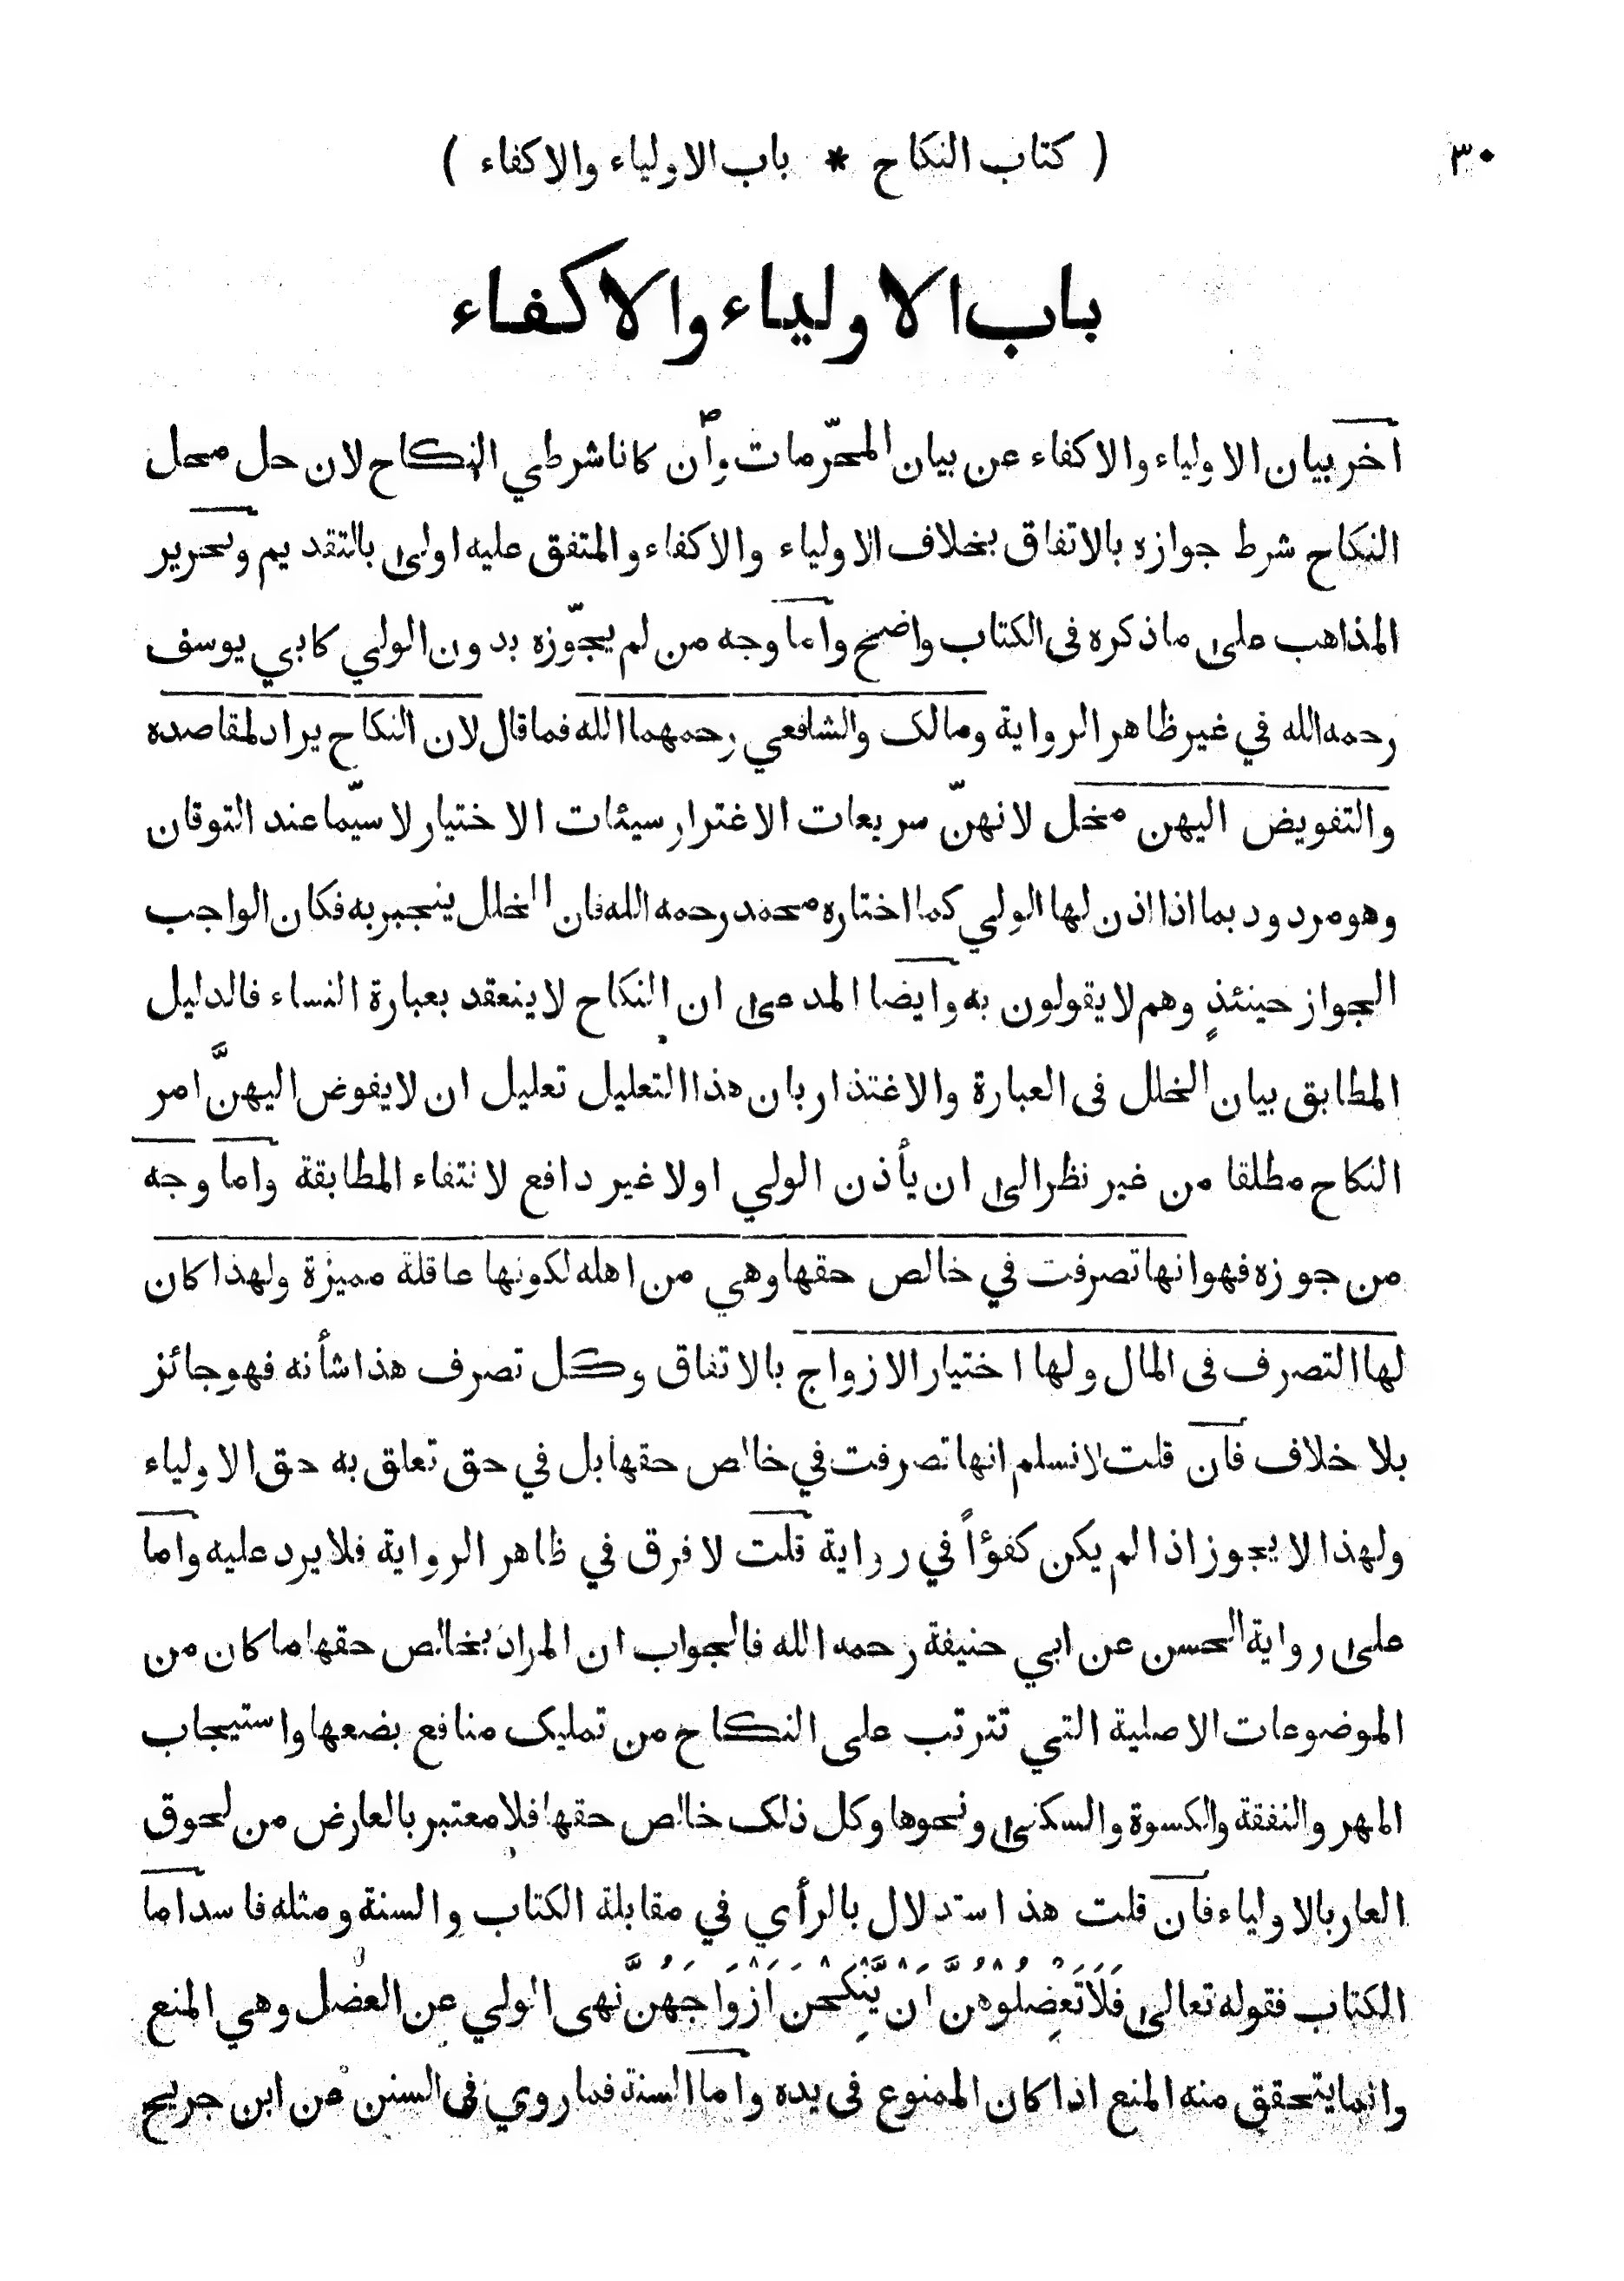 ٣٠
( كتاب النكاح * باب الاولياء والاكفاء )
باب الاولياء والاكفاء
اخر بيان الاولياء والاكفاء عن بيان المحرّمات وأن كانا شرطي النكاح لان حل محل
النكاح شرط جوازه بالاتفاق بخلاف الاولياء والاكفاء والمتفق عليه اولى بالتقديم وتحرير
المذاهب على ماذكره فى الكتاب واضح واما وجه من لم يجّوزه بدون الولي كابي يوسف
رحمه الله في غير ظاهر الرواية ومالك والشافعي رحمهما الله فما قال لان النكاح يراد لمقاصده
والتفويض اليهن مخل لانهنّ سريعات الاغترار سيئات الاختيار لا سيّما عند التوقان
وهو مردود بما اذا اذن لها الولي كما اختاره محمد رحمه الله فان الخلل ينجبر به فكان الواجب
الجواز حينئذٍ وهم لا يقولون به وايضا المدعى ان النكاح لا ينعقد بعبارة النساء فالدليل
المطابق بيان الخلل فى العبارة والاغتذار بان هذا التعليل تعليل ان لا يفوض اليهنَّ امر
النكاح مطلقا من غير نظر الى ان يأذن الولي اولا غير دافع لانتفاء المطابقة واما وجه
من جوزه فهو انها تصرفت في خالص حقها وهي من اهله لكونها عاقلة مميزة ولهذا كان
لها التصرف فى المال ولها اختيار الازواج بالاتفاق وكل تصرف هذا شأنه فهو جائز
بلا خلاف فان قلت لا نسلم انها تصرفت في خالص حقها بل في حق تعلق به حق الاولياء
ولهذا لا يجوز اذا لم يكن كفؤاً في رواية قلت لا فرق في ظاهر الرواية فلا يرد عليه واما
على رواية الحسن عن ابي حنيفة رحمه الله فالجواب ان المراد بخالص حقها ما كان من
الموضوعات الاصلية التي تترتب على النكاح من تمليك منافع بضعها واستيجاب
المهر والنفقة والكسوة والسكنى ونحوها وكل ذلك خالص حقها فلا معتبر بالعارض من لحوق
العار بالاولياء فان قلت هذا استدلال بالرأي في مقابلة الكتاب والسنة ومثله فاسد اما
الكتاب فقوله تعالى فَلَا تَعْضِلُوْهُنَّ اَنْ يَّنْكِحْنَ اَزْوَاجَهُنَّ نهى الولي عن العضل وهي المنع
وانما يتحقق منه المنع اذا كان الممنوع فى يده واما السنة فما روي فى السنن عن ابن جريج